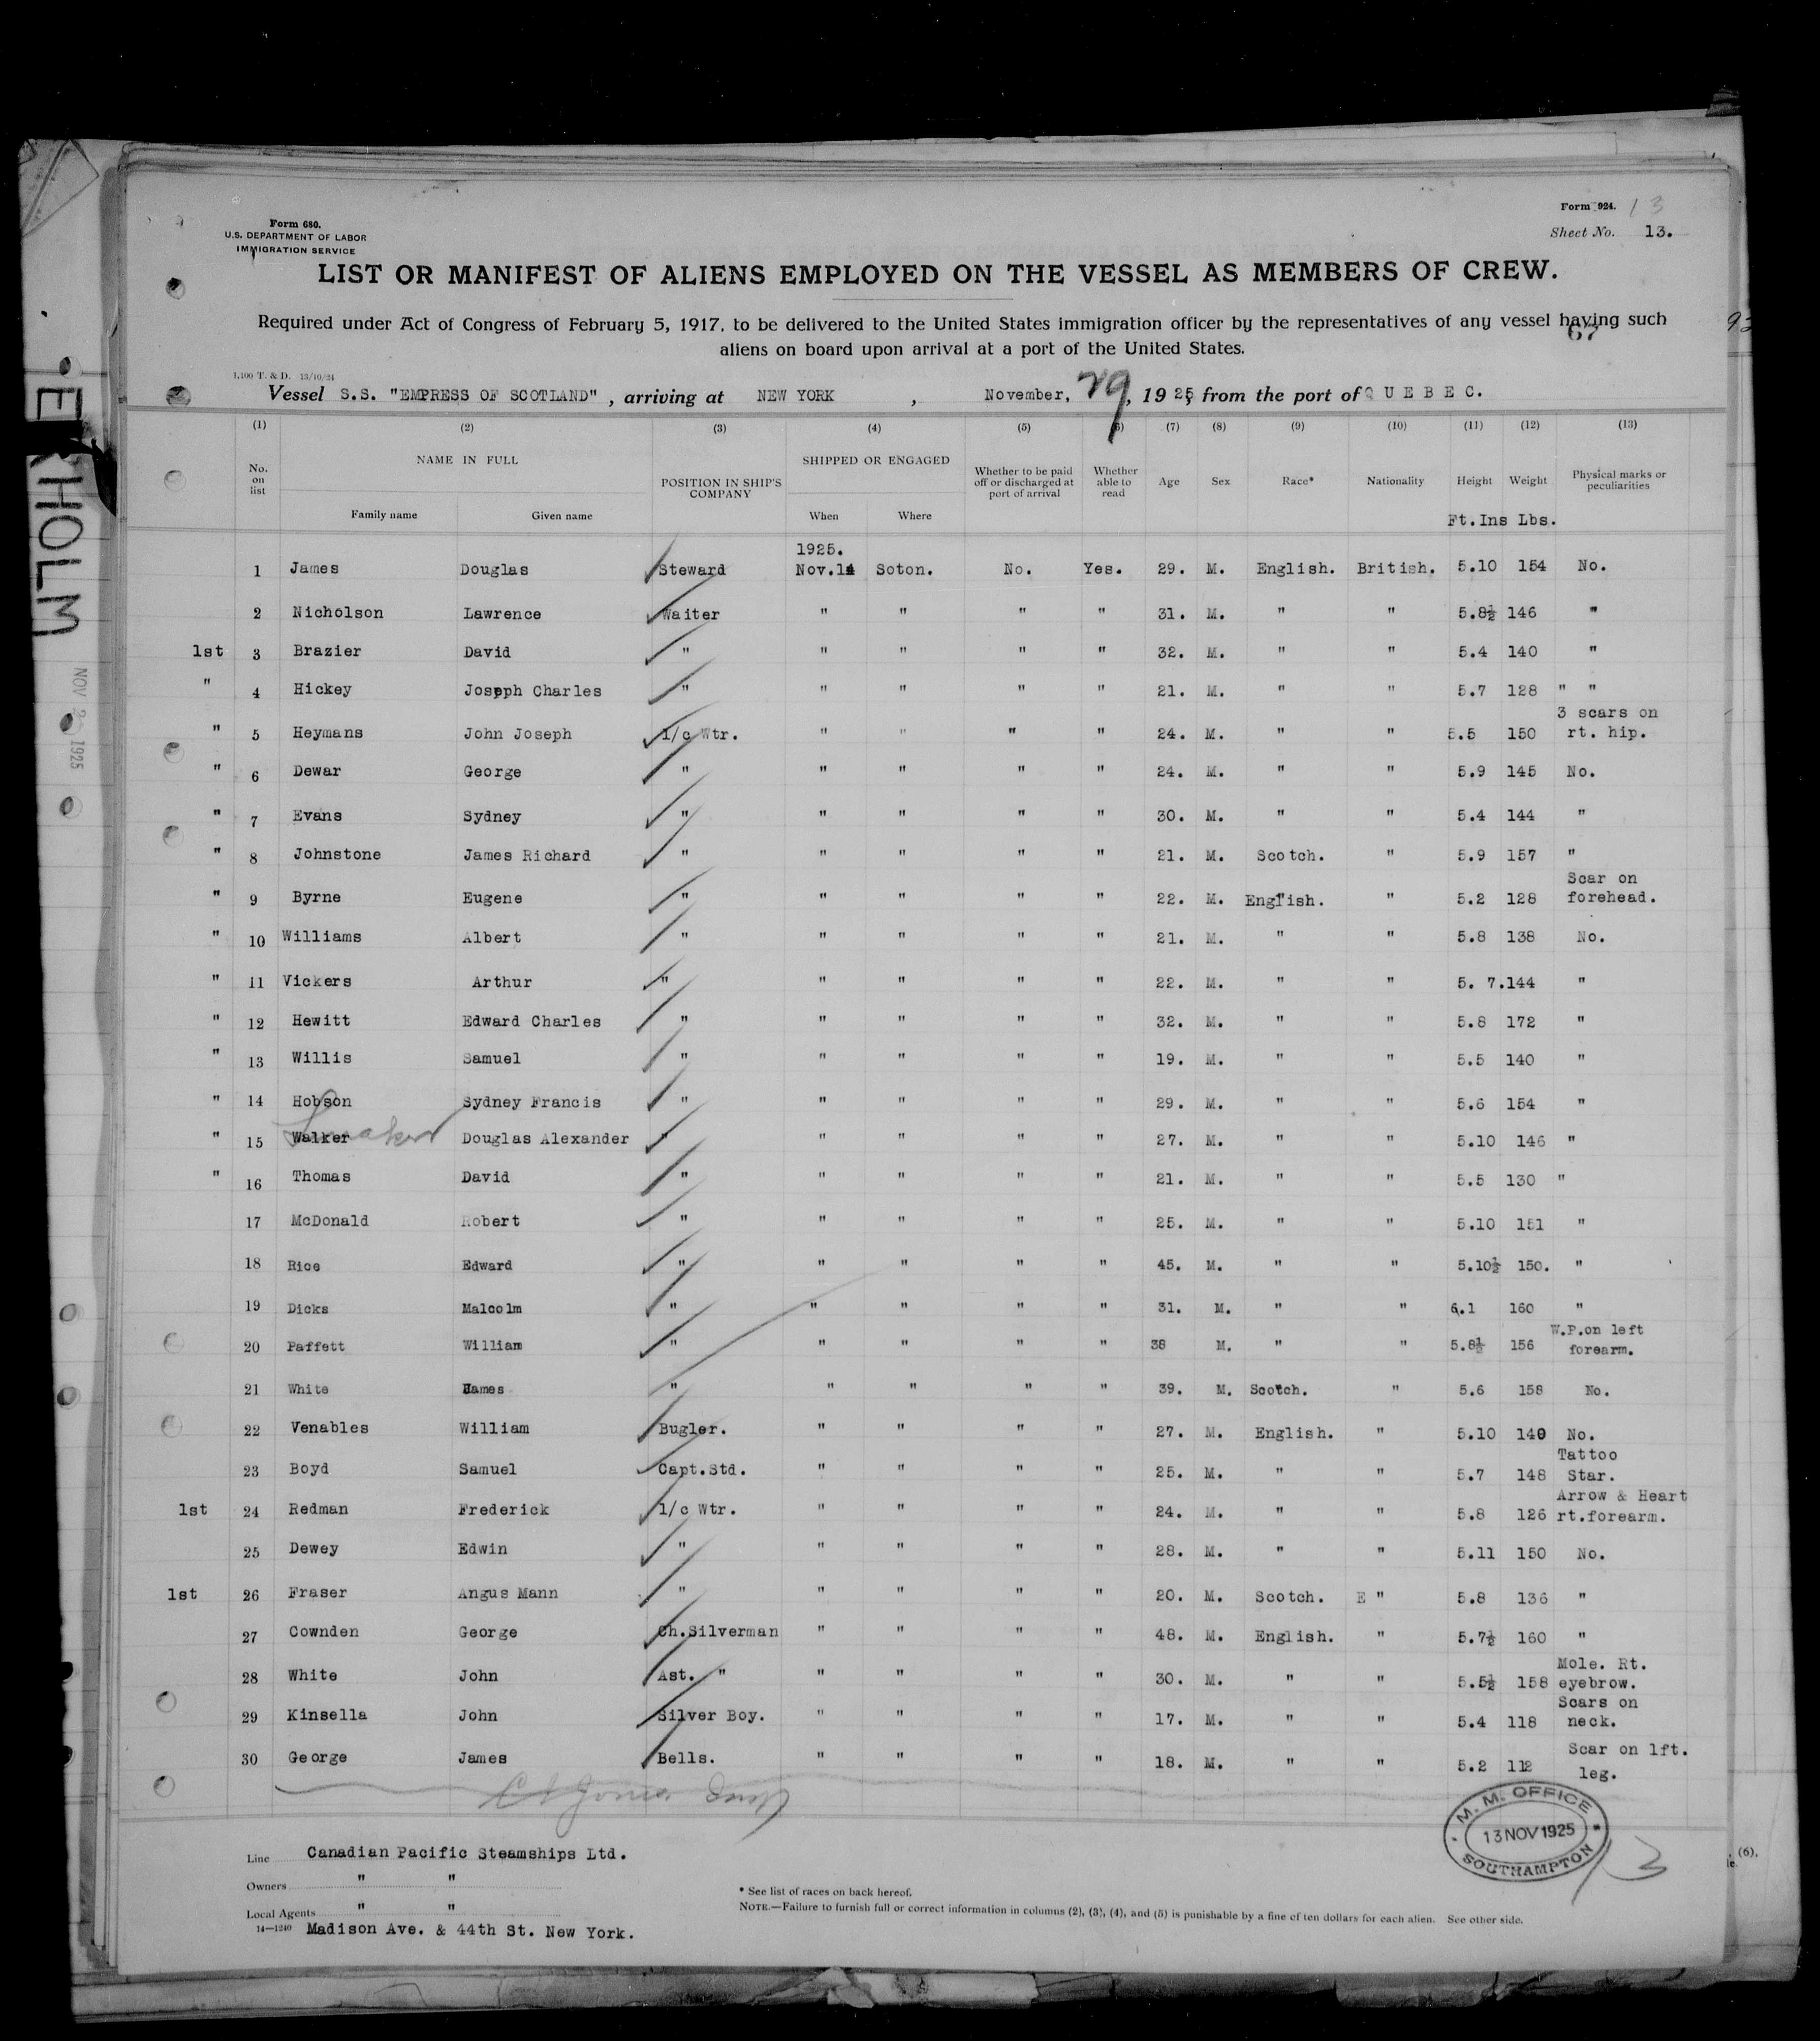 Form 680.
U.S. DEPARTMENT OF LABOR
IMMIGRATION SERVICE
Form 924. 13
Sheet No. 13.
LIST OR MANIFEST OF ALIENS EMPLOYED ON THE VESSEL AS MEMBERS OF CREW.
Required under Act of Congress of February 5, 1917, to be delivered to the United States immigration officer by the representatives of any vessel having such
67
aliens on board upon arrival at a port of the United States.
1,100 T. & D. 13/10/24
Vessel S.S. "EMPRESS OF SCOTLAND", arriving at NEW YORK, November, 29, 1925, from the port of QUEBEC.
(1) (2) (3) (4) (5) (6) (7) (8) (9) (10) (11) (12) (13)
No. on list NAME IN FULL Family name Given name POSITION IN SHIP'S COMPANY SHIPPED OR ENGAGED When Where Whether to be paid off or discharged at port of arrival Whether able to read Age Sex Race* Nationality Height Weight Physical marks or peculiarities
Ft.Ins Lbs.
1925.
1 James Douglas Steward Nov.14 Soton. No. Yes. 29. M. English. British. 5.10 154 No.
2 Nicholson Lawrence Waiter " " " " 31. M. " " 5.8½ 146 "
1st 3 Brazier David " " " " " 32. M. " " 5.4 140 "
" 4 Hickey Joseph Charles " " " " " 21. M. " " 5.7 128 " "
" 5 Heymans John Joseph 1/c Wtr. " " " " 24. M. " " 5.5 150 3 scars on rt. hip.
" 6 Dewar George " " " " " 24. M. " " 5.9 145 No.
" 7 Evans Sydney " " " " " 30. M. " " 5.4 144 "
" 8 Johnstone James Richard " " " " " 21. M. Scotch. " 5.9 157 "
" 9 Byrne Eugene " " " " " 22. M. English. " 5.2 128 Scar on forehead.
" 10 Williams Albert " " " " " 21. M. " " 5.8 138 No.
" 11 Vickers Arthur " " " " " 22. M. " " 5. 7. 144 "
" 12 Hewitt Edward Charles " " " " " 32. M. " " 5.8 172 "
" 13 Willis Samuel " " " " " 19. M. " " 5.5 140 "
" 14 Hobson Sydney Francis " " " " " 29. M. " " 5.6 154 "
" 15 Walker Douglas Alexander " " " " " 27. M. " " 5.10 146 "
" 16 Thomas David " " " " " 21. M. " " 5.5 130 "
17 McDonald Robert " " " " " 25. M. " " 5.10 151 "
18 Rice Edward " " " " " 45. M. " " 5.10½ 150. "
19 Dicks Malcolm " " " " " 31. M. " " 6.1 160 "
20 Paffett William " " " " " 38 M. " " 5.8½ 156 W.P.on left forearm.
21 White James " " " " " 39. M. Scotch. " 5.6 158 No.
22 Venables William Bugler. " " " " 27. M. English. " 5.10 140 No.
23 Boyd Samuel Capt.Std. " " " " 25. M. " " 5.7 148 Tattoo Star.
1st 24 Redman Frederick 1/c Wtr. " " " " 24. M. " " 5.8 126 Arrow & Heart rt.forearm.
25 Dewey Edwin " " " " " 28. M. " " 5.11 150 No.
1st 26 Fraser Angus Mann " " " " " 20. M. Scotch. E " 5.8 136 "
27 Cownden George Ch.Silverman " " " " 48. M. English. " 5.7½ 160 "
28 White John Ast. " " " " " 30. M. " " 5.5½ 158 Mole. Rt. eyebrow.
29 Kinsella John Silver Boy. " " " " 17. M. " " 5.4 118 Scars on neck.
30 George James Bells. " " " " 18. M. " " 5.2 112 Scar on lft. leg.
M. M. OFFICE
13 NOV 1925
SOUTHAMPTON
13
Line Canadian Pacific Steamships Ltd.
Owners " "
Local Agents " "
14—1240 Madison Ave. & 44th St. New York.
* See list of races on back hereof.
NOTE.—Failure to furnish full or correct information in columns (2), (3), (4), and (5) is punishable by a fine of ten dollars for each alien. See other side.
HOLM
NOV 2 1925
(6),